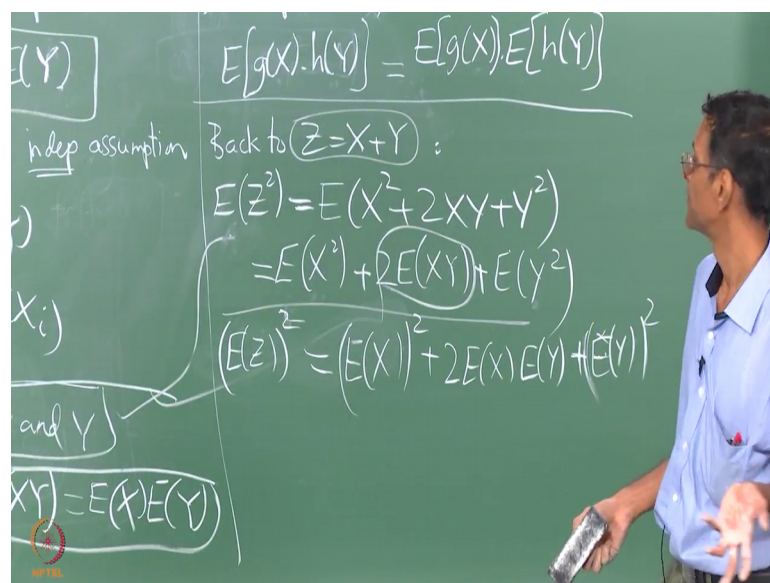 E(Y)
indep assumption
)
X_i)
and Y
XY) = E(X)E(Y)
E[g(X).h(Y)] = E[g(X)].E[h(Y)]
Back to Z=X+Y :
E(Z²) = E(X²+2XY+Y²)
=E(X²)+2E(XY)+E(Y²)
(E(Z))² = (E(X))² + 2E(X)E(Y)+(E(Y))²
NPTEL